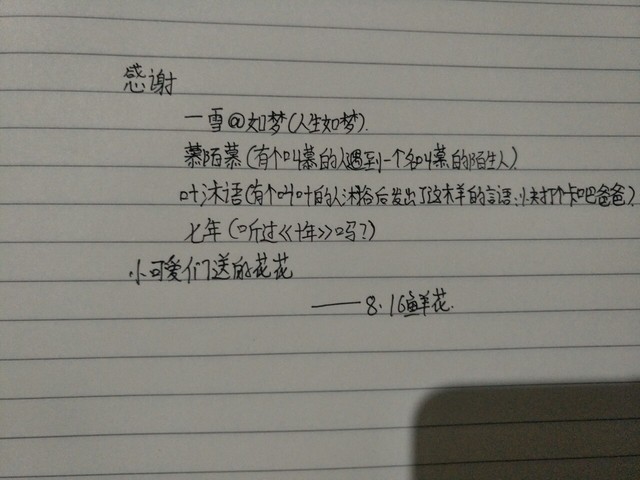 感谢
一雪@如梦(人生如梦).
慕陌慕(有个叫慕的人遇到一个名叫慕的陌生人)
叶沐语(有个叫叶的人沐浴后发出了这样的言语:小夫打个卡吧爸爸)
七年(听过《七年》吗?)
小可爱们送的花花
——8.16鲜花.